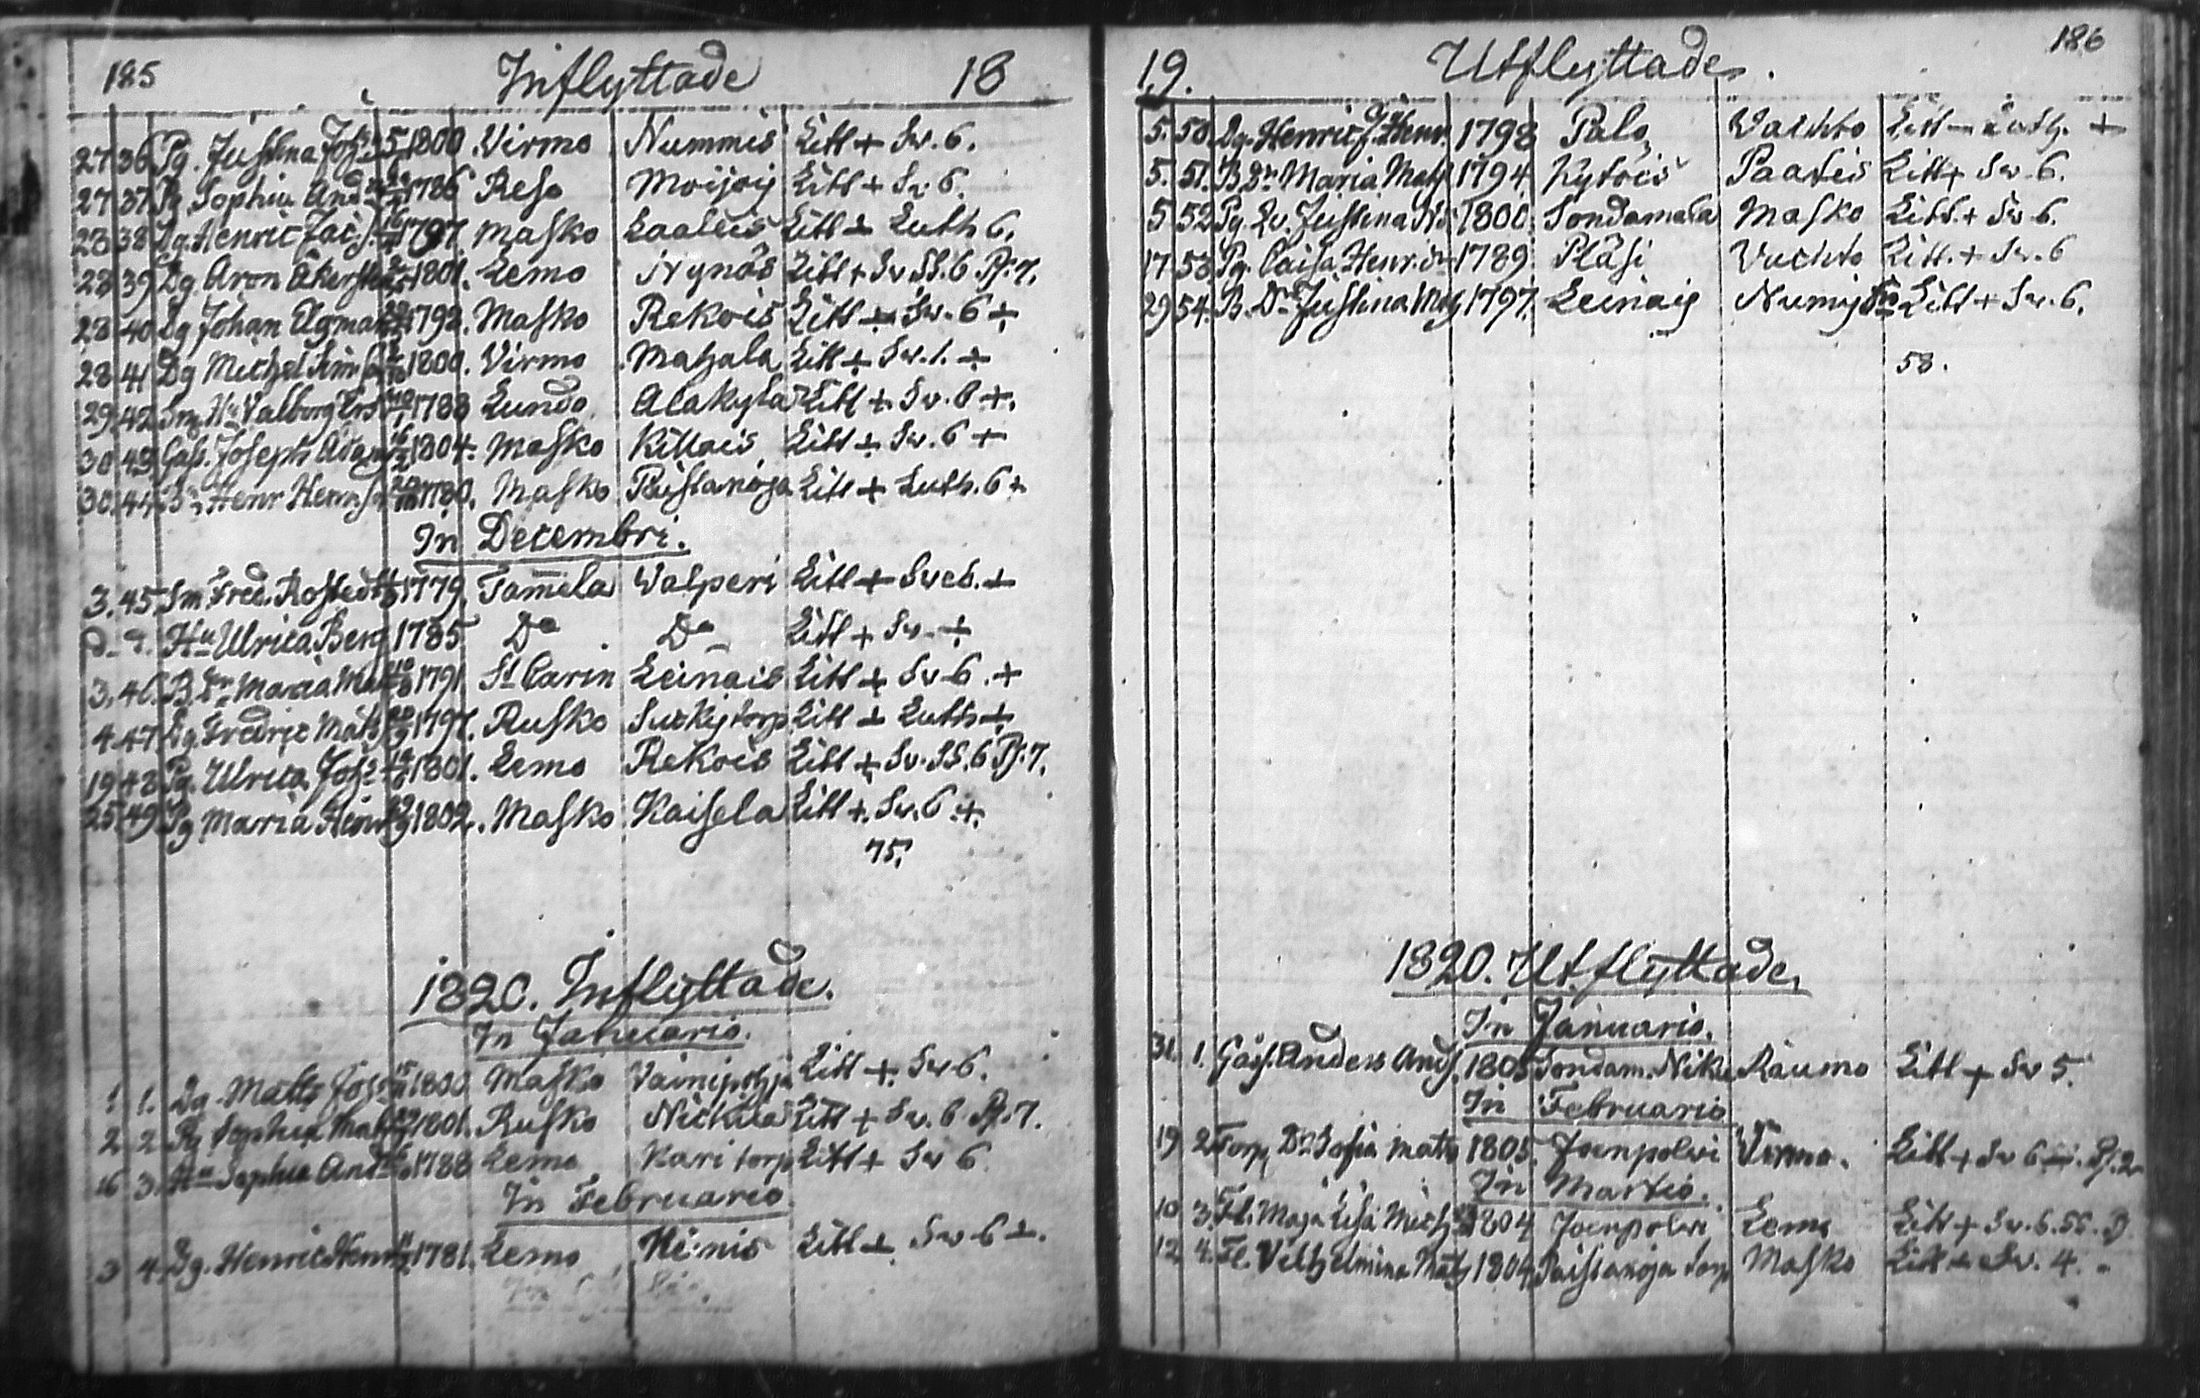 185 Inflyttade 18
27 36 Pg. Justina Joh. 5 1800. Virmo Nummis Litt + Sv. 6.
27 37 Pg. Sophia And. 1786 Reso Moijoij Litt + Sv 6.
28 38 Dg Henric Jac. 1797. Masko Laaleis Litt + Luth 6.
28 39 Dg. Aron Åkerst 1801. Lemo Nynäs Litt + Sv SS. 6 Ps. 7.
28 40 Dg Johan Agman 1792. Masko Rekois Litt + Sv. 6 +
28 41 Dg Michel Sim 1800. Virmo Mahala Litt + Sv. 1. +
29 42 Sm. Hu Valborg Ers 1788 Lundo Alakyla Litt + Sv. 6 +.
30 43 Gåss. Joseph Adam 16 1804. Masko Killais Litt + Sv. 6 +
30. 44 Henr Henrss 20 1780. Masko Paistanoja Litt + Luth. 6 +
In Decembri.
3. 45 Sm Fred. Rostedt 1779. Tamela Valperi Litt + Sv 6. +
D. d. Hu Ulrica Berg 1785 Do Do Litt + Sv. +
3. 46. B Dr Maria Mat 1791 St Carin Leinais Litt + Sv 6. +
4 47 Dg Fredric Mats 1797. Rusko Suikij torp Litt + Luth +
19 48 Pg. Ulrica Joh 1801. Lemo Rekois Litt + Sv. SS. 6 Ps. 7.
25 49 Pg Maria Henr 1802. Masko Kaisela Litt +. Sv. 6 +.
75.
1820. Inflyttade.
In Januario.
1 1. Dg. Matts Joh 15 1800 Masko Vainiopohja Litt +. Sv 6.
2 2 Pg Sophia Mats 1801. Rusko Nickula Litt + Sv. 6 Ps. 7.
16 3. Hu Sophia And 1788 Lemo Kari torp Litt + Sv 6
In Februario.
3 4. Dg. Henric Henr 1781. Lemo Heinis Litt + Sv 6 +.
19. Utflyttade. 186
5. 50. Dg. Henric J. Henr. 1798 Palo Vachto Litt Luth. +
5. 51. B Dr Maria Mats 1794 Kytöis Paatis Litt + Sv. 6.
5 52 Pg. Justina 1800. Tondamala Masko Litt. + Sv 6.
17. 53 Pg. Caisa Henr. dr 1789. Pläsi Vachto Litt. + Sv. 6
29 54. B. Dr Justina Mats 1797. Leinais Numis Litt + Sv. 6.
58.
1820. Utflyttade.
In Januario.
31. 1. Gåss. Anders And. 1805 Tondam. Niku Raumo Litt + Sv 5.
In Februario
19 2 Torp. Dr Sofia Mats 1805. Joenpolvi Virmo. Litt + Sv 6 Ps. 2
In Martio.
10 3. Fl. Maja Lisa Mich 1804 Joenpolvi Lemo Litt + Sv. 6. SS.
12 4. Fl. Vilhelmina Mats 1804 Paistanoja torp Masko Litt + Sv. 4.